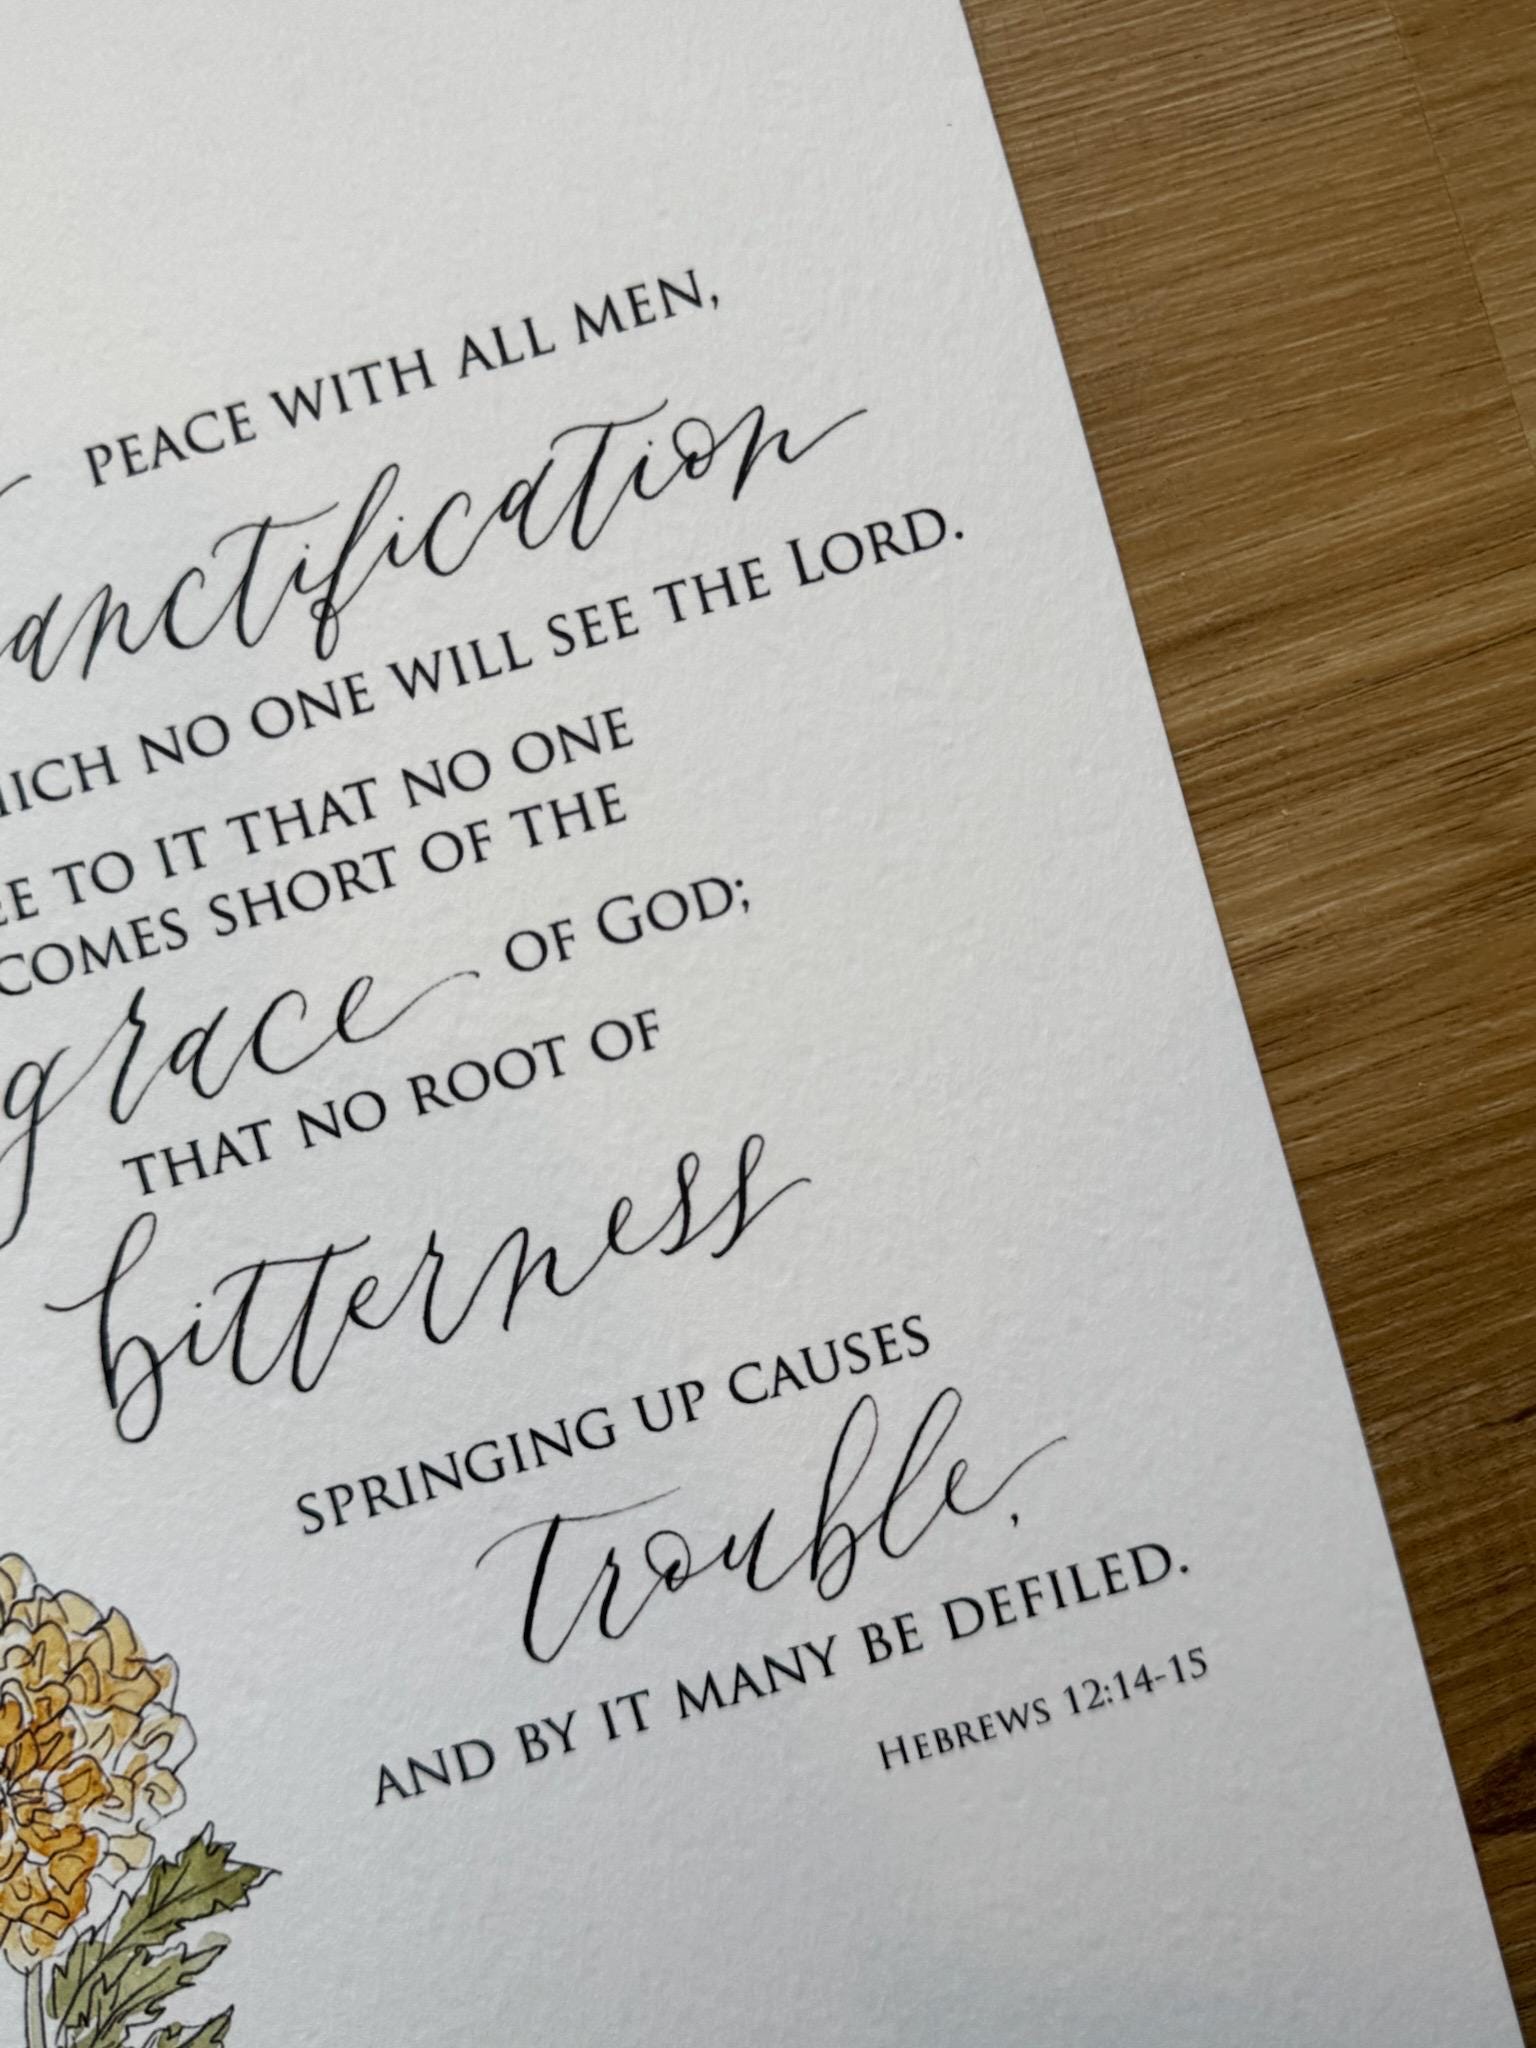 PEACE WITH ALL MEN,
anctification
HICH NO ONE WILL SEE THE LORD.
EE TO IT THAT NO ONE
COMES SHORT OF THE
grace OF GOD;
THAT NO ROOT OF
bitterness
SPRINGING UP CAUSES
trouble,
AND BY IT MANY BE DEFILED.
HEBREWS 12:14-15